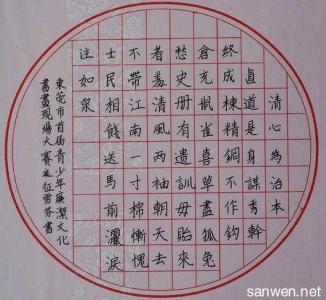 清心為治本
直道是身謀秀幹
終成棟精鋼不作鈎
倉充鼠雀喜草盡狐兔
愁史冊有遺訓毋貽來
者羞清風兩袖朝天去
不帶江南一寸棉慚愧
士民相餞送馬前灑淚
注如泉
東莞市首届青少年廉潔文化
書畫現場大賽 書
sanwen.net